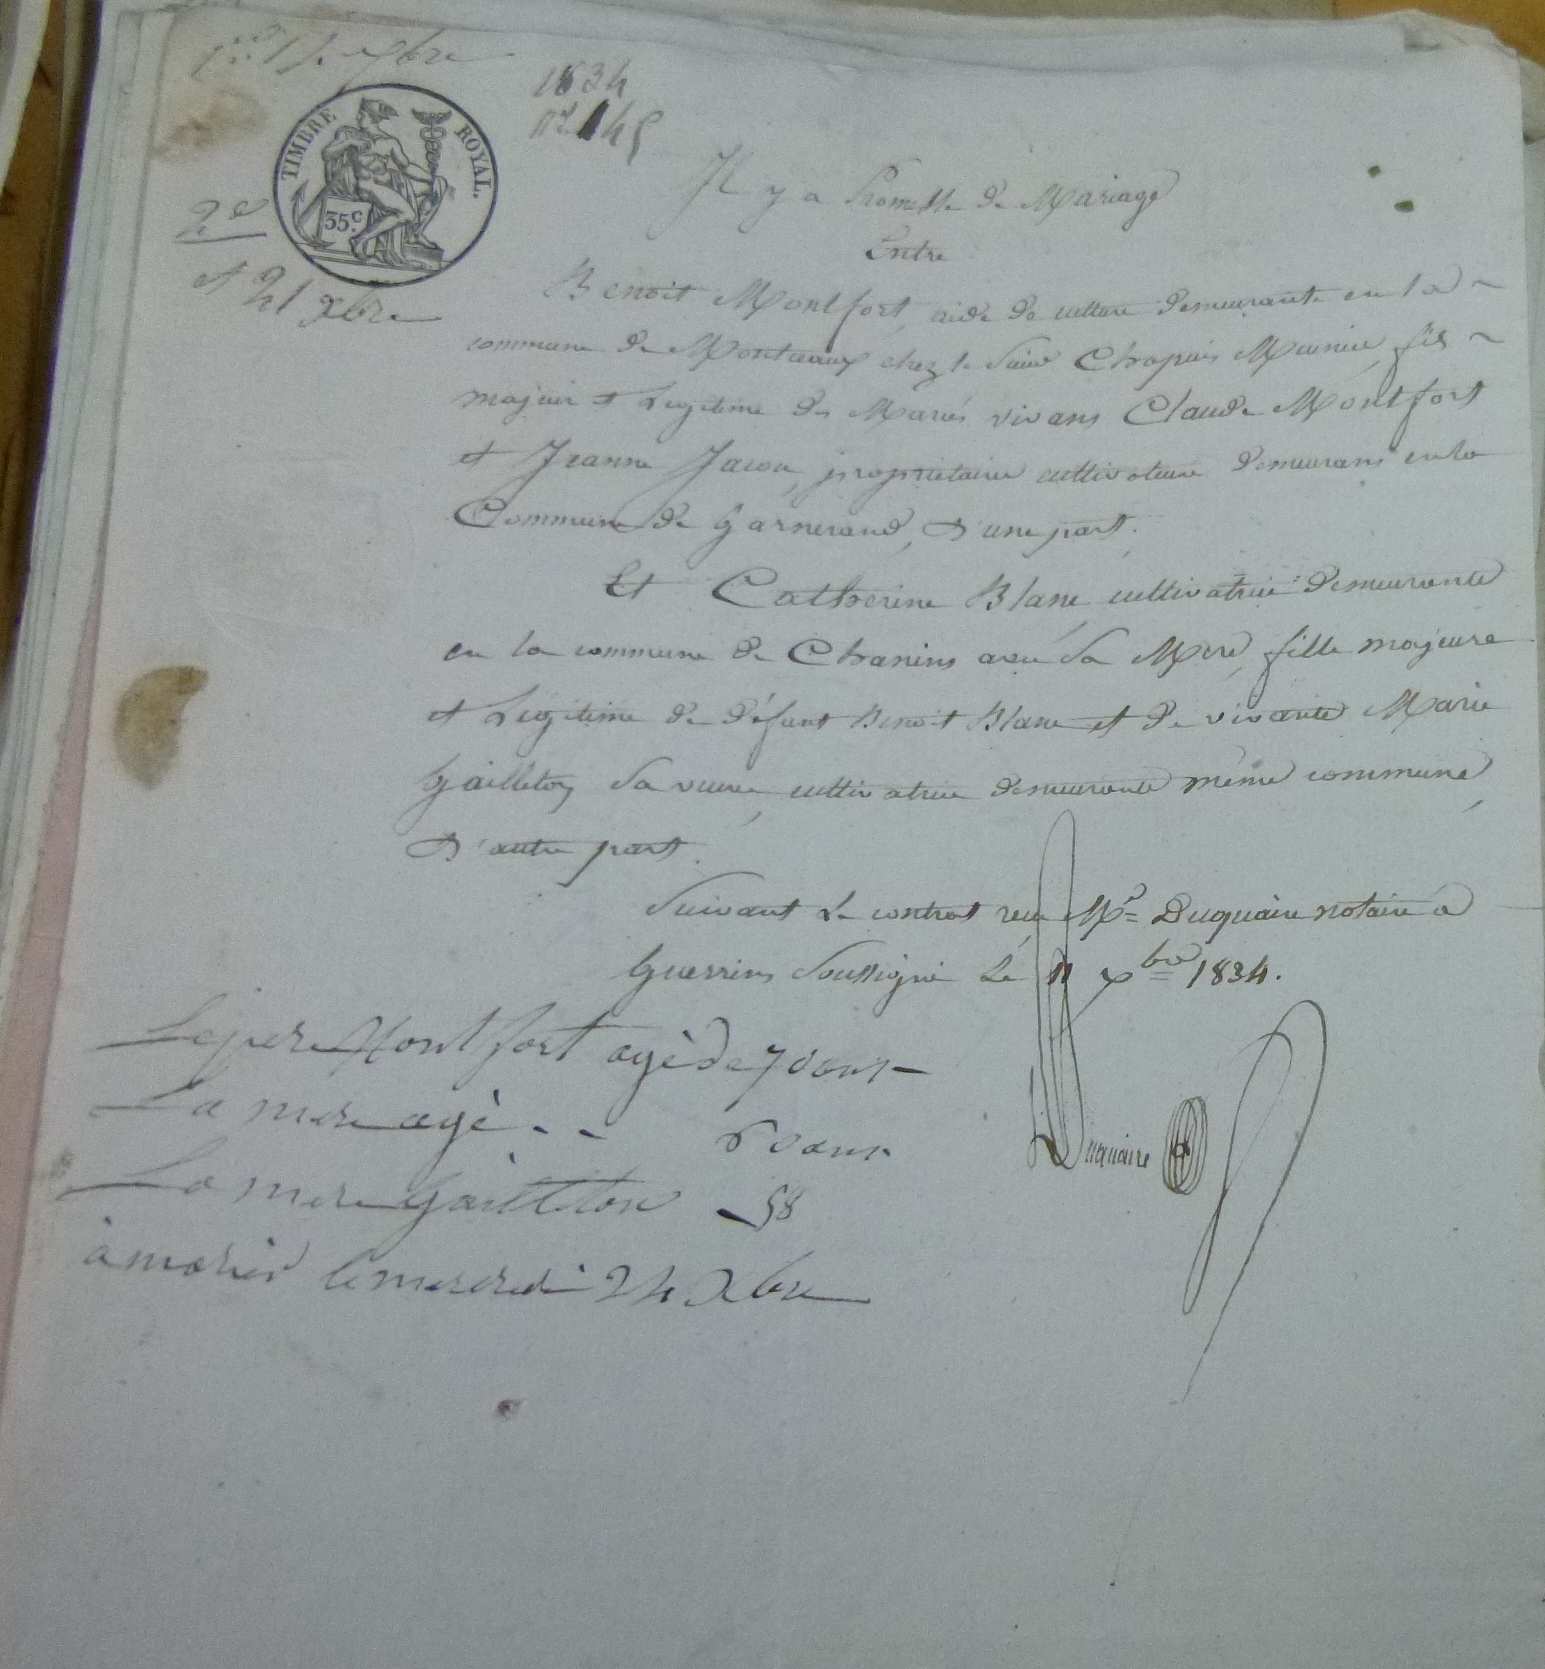 1834
n° 145
TIMBRE ROYAL.
35c.
2e
et 21 Xbre
Il y a Promesse de Mariage
Entre
Benoit Montfort, aide de culture demeurante en la
commune de Montceaux chez le Sieur Chapuis Meunier, fils
majeur et Legitime des Mariés vivans Claude Montfort
et Jeanne, propriétaires cultivateurs demeurans en la
Commune de Garnerand, d'une part.
Et Catherine Blanc cultivatrice demeurante
en la commune de Chanins avec sa Mere, fille majeure
et Legitime de défunt Benoit Blanc et de vivante Marie
Gailleton, sa veuve, cultivatrice demeurante même commune,
d'autre part.
Suivant le contrat reçu Me Duquaire notaire à
Guerrins soussigné Le 11 xbre 1834.
Le pere Montfort agè de 70 ans
La mere agè - - 60 ans
La mere Gailleton - 58
à marier le mercredi 24 Xbre
Duquaire